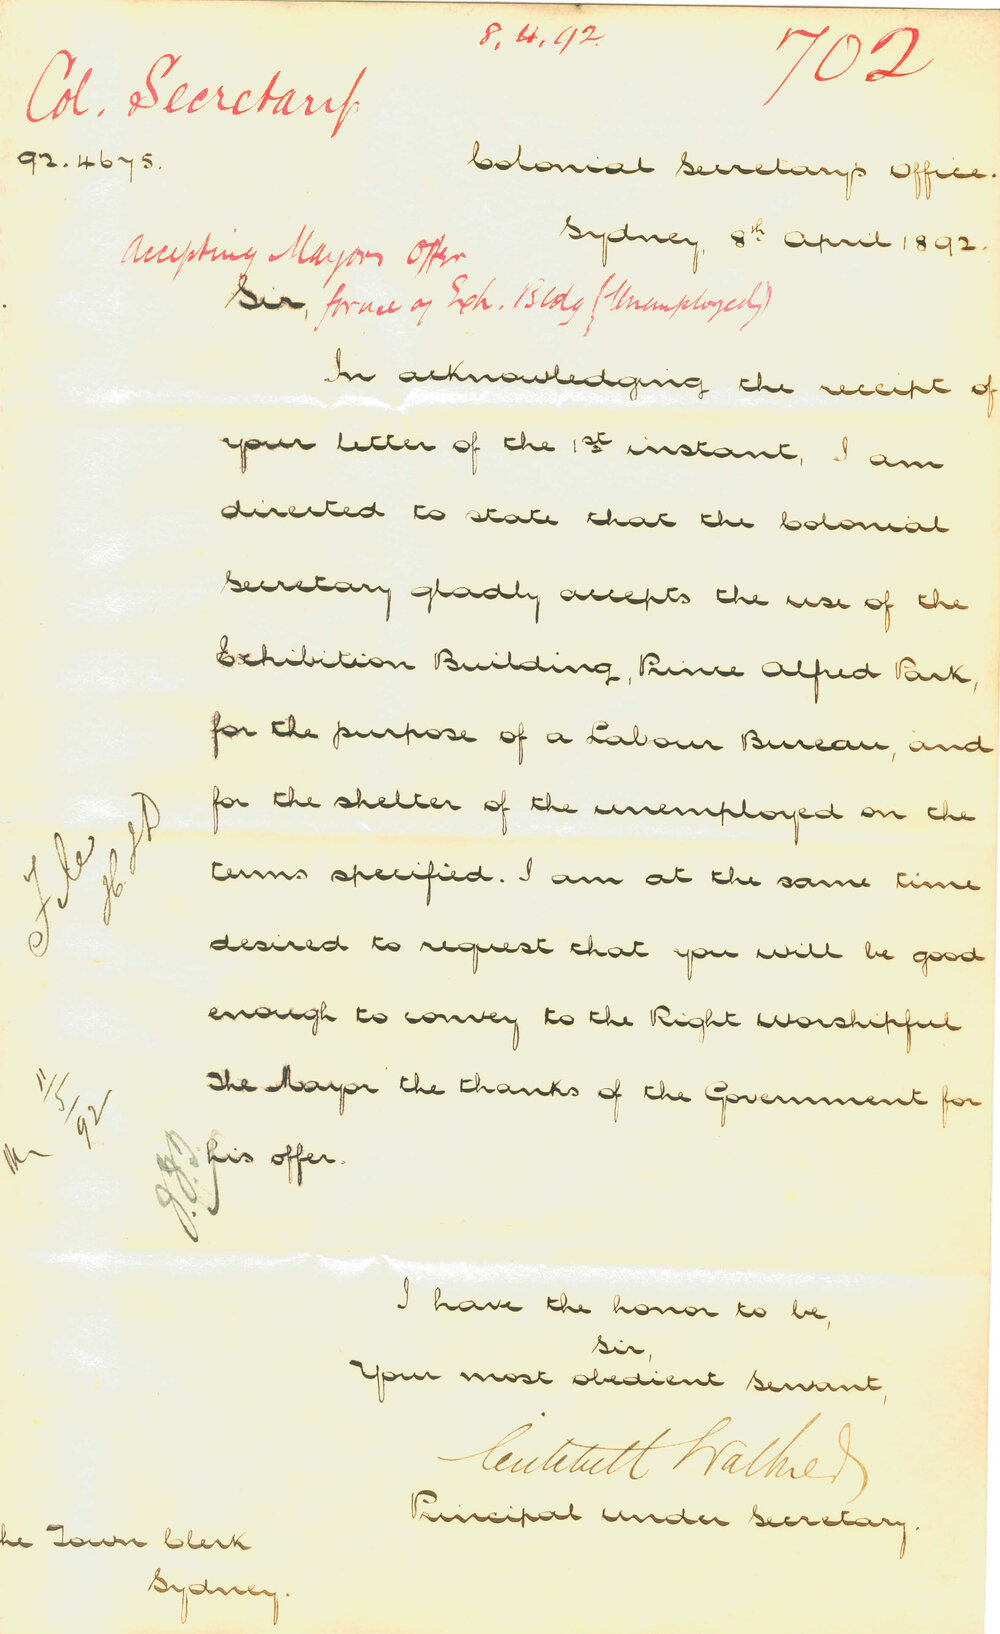 8.4.92.
702
Col. Secretary
92.4675.
Colonial Secretary's Office.
Sydney, 8th April 1892.
Accepting Mayors Offer
Sir, for use of Exh. Bldg (Unemployed)
In acknowledging the receipt of
your letter of the 1st instant, I am
directed to state that the Colonial
Secretary gladly accepts the use of the
Exhibition Building, Prince Alfred Park,
for the purpose of a Labour Bureau, and
for the shelter of the unemployed on the
terms specified. I am at the same time
desired to request that you will be good
enough to convey to the Right Worshipful
The Mayor the thanks of the Government for
his offer.
File
11/5/92
I have the honor to be,
Sir,
Your most obedient Servant,
Critchett Walker
Principal under Secretary.
he Town Clerk
Sydney.